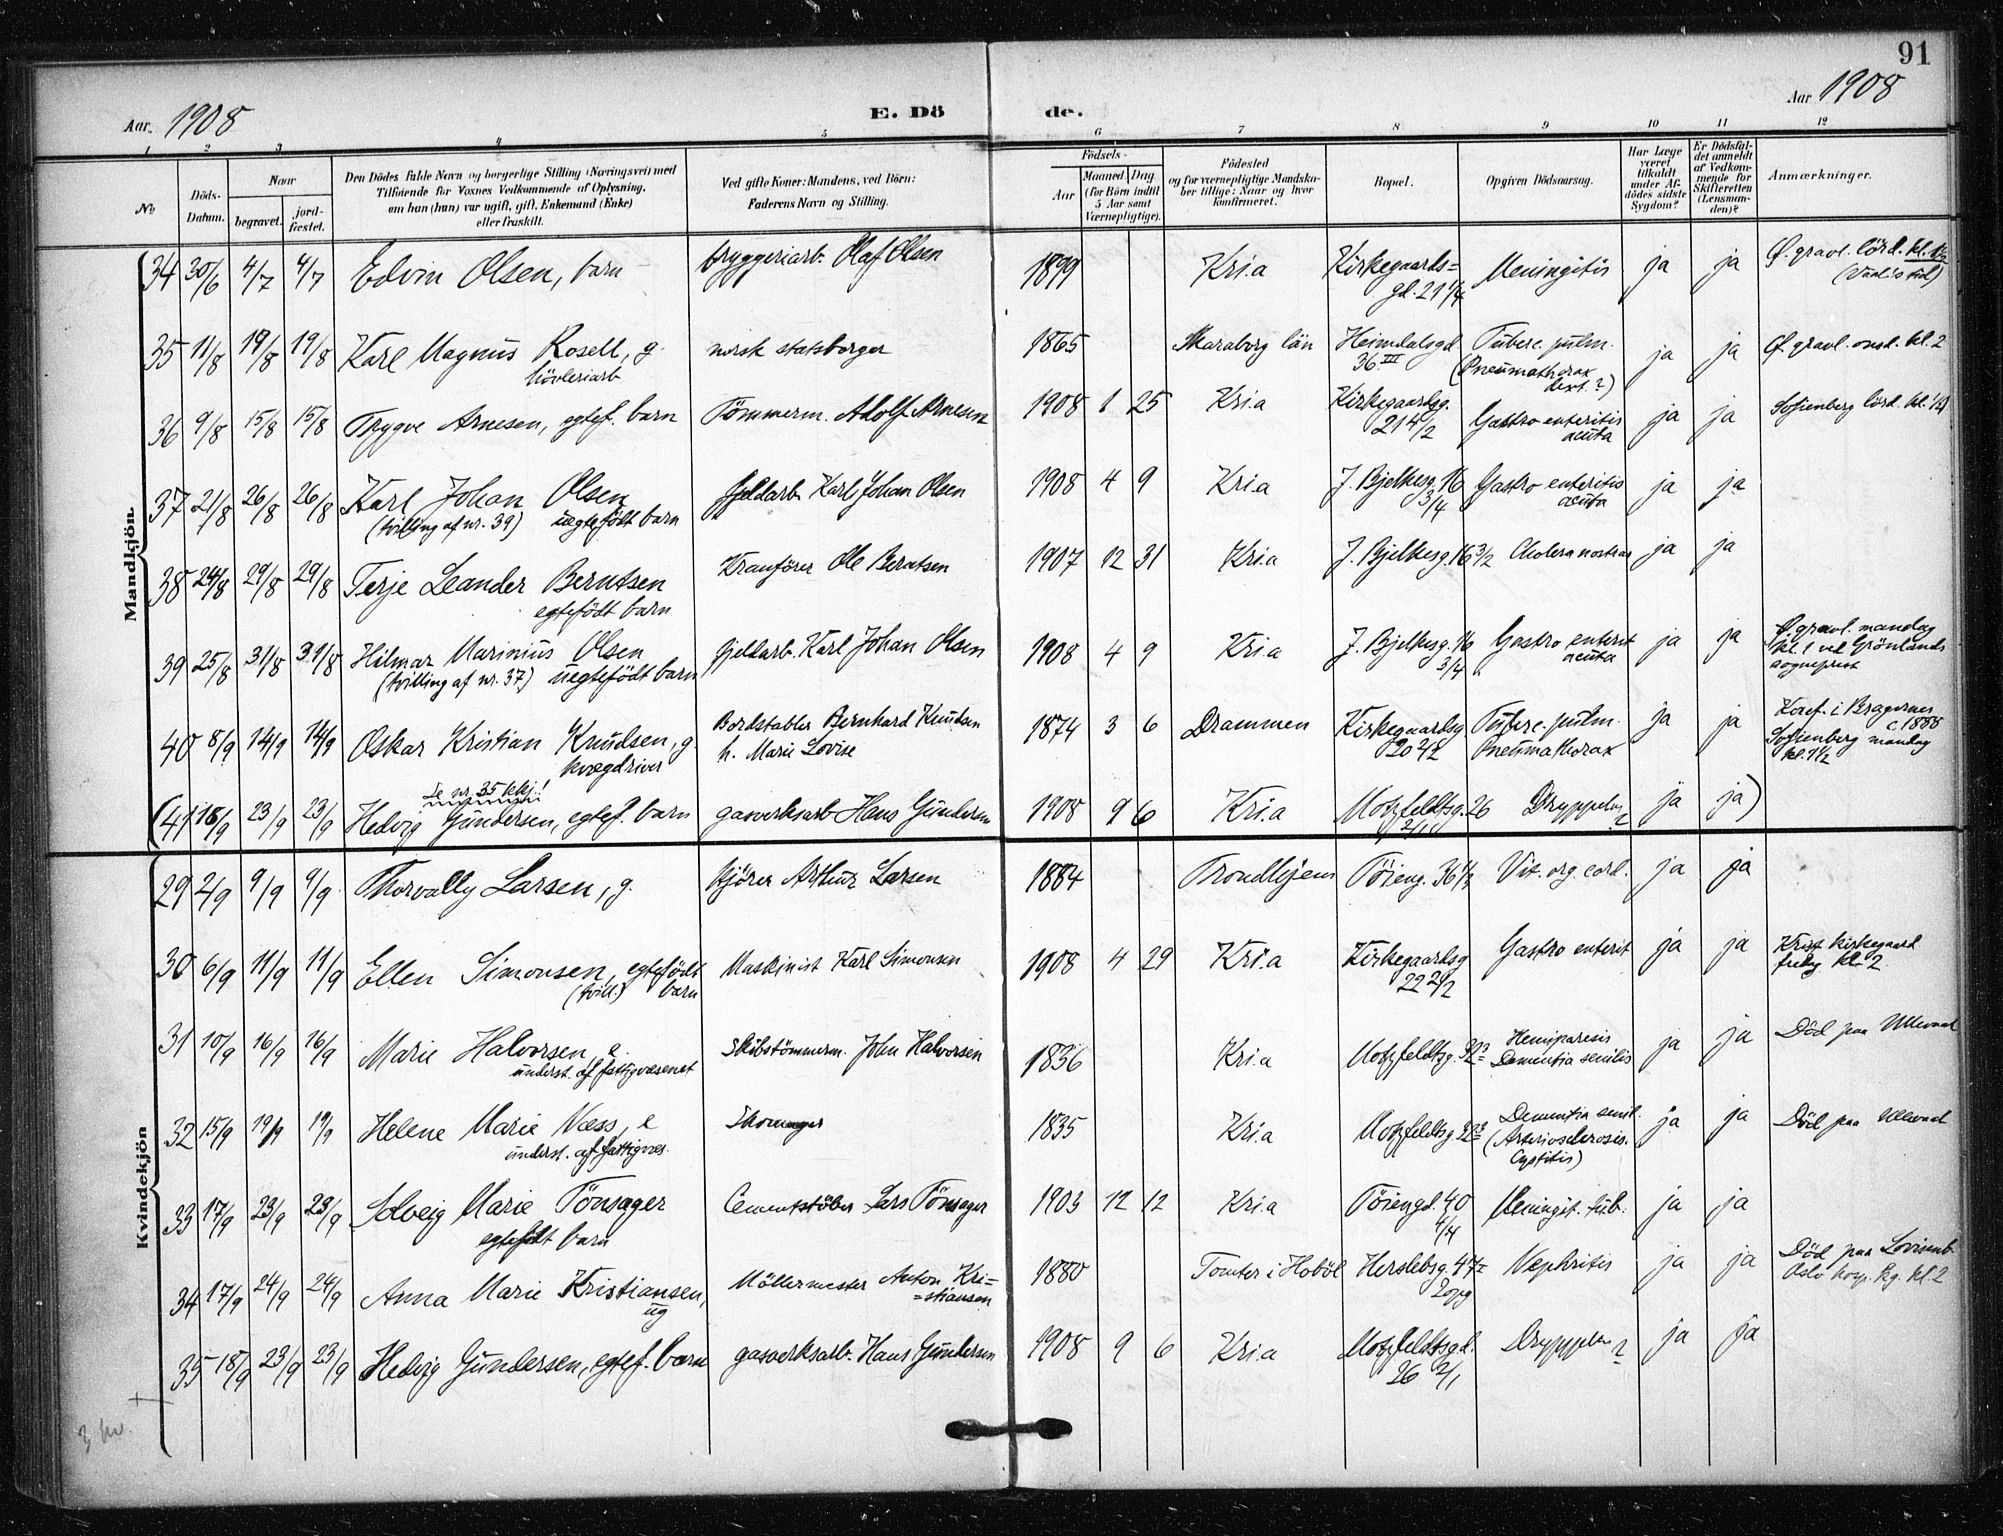 91
Aar. 1908 E. Dö de. Aar 1908
1 2 3 4 5 6 7 8 9 10 11 12
№
Döds-Datum.
Naar
begravet.
jord-fæstet.
Den Dödes fulde Navn og borgerlige Stilling (Næringsvei) med
Tilföiende for Voxnes Vedkommende af Oplysning,
om han (hun) var ugift, gift, Enkemand (Enke)
eller fraskilt.
Ved gifte Koner: Mandens, ved Börn:
Faderens Navn og Stilling.
Födsels-
Aar
Maaned. Dag.
(for Börn indtil
5 Aar samt
Værnepligtige).
Födested
og for værnepligtige Mandska-
ber tillige: Naar og hvor
konfirmeret.
Bopæl.
Opgiven Dödsaarsag.
Har Læge
været
tilkaldt
under Af-
dödes sidste
Sygdom?
Er Dödsfal-
det anmeldt
af Vedkom-
mende for
Skifteretten
(Lensman-
den)?
Anmærkninger.
Mandkjön.
34 30/6 4/7 4/7 Edvin Olsen, barn bryggeriarb. Olaf Olsen 1899 Kri.a Kirkegaards=
gd. 21 1/4 Meningitis ja ja Ø. gravl. lörd. kl.
35 11/8 19/8 19/8 Karl Magnus Rosell, g.
hövleriarb norsk statsborger 1865 Skaraborg län Heimdalsgd
36 III Tuberc. pulm.
(Pneumathorax
dext.?) ja ja Ø. gravl. onsd. kl. 2
36 9/8 15/8 15/8 Trygve Arnesen, egtef. barn Tömmerm. Adolf Arnesen 1908 1 25 Kri.a Kirkegaardsg.
21 4/2 Gastro enteritis
acuta ja ja Sofienberg lörd. kl.
37 21/8 26/8 26/8 Karl Johan Olsen
(tvilling af nr. 39) uegtefödt barn fjeldarb. Karl Johan Olsen 1908 4 9 Kri.a J. Bjelkesg. 16
3/4 Gastro enteritis
acuta ja ja
38 24/8 29/8 29/8 Terje Leander Berntsen
egtefödt barn Kranförer Ole Berntsen 1907 12 31 Kri.a J. Bjelkesg. 16 3/2 Cholera nostras ja ja
39 25/8 31/8 31/8 Hilmar Marinius Olsen
(tvilling af nr. 37) uegtefödt barn fjeldarb. Karl Johan Olsen 1908 4 9 Kri.a J. Bjelkesg. 16
3/4 Gastro enterit
acuta ja ja Ø. gravl. mandag
kl. 1 ved Grönlands
sogneprest
40 8/9 14/9 14/9 Oskar Kristian Knudsen, g.
kvægdriver Bordstabler Bernhard Knudsen
h. Marie Lovise 1874 3 6 Drammen Kirkegaardsg
20 2/2 Tuberc. pulm.
Pneumathorax ja ja Konf. i Bragernes
c. 1888
Sofienberg mandag
kl. 1 1/2
Se nr. 35 kkj.!
(41 18/9 23/9 23/9 Hedvig Gundersen, egtef. barn gasverksarb Hans Gundersen 1908 9 6 Kri.a Motzfeldtsg. 26
2/1 Dryppelse ? ja ja)
Kvindekjön
29 2/9 9/9 9/9 Thorvally Larsen, g. kjörer Arthur Larsen 1884 Trondhjem Töieng. 36 1/3 Vit. org. cord. ja ja
30 6/9 11/9 11/9 Ellen Simonsen, egtefödt
(tvill.) barn Maskinist Karl Simonsen 1908 4 29 Kri.a Kirkegaardsg
22 2/2 Gastro enterit ja ja Krist kirkegaard
fredag kl. 2
31 10/9 16/9 16/9 Marie Halvorsen, e.
underst. af fattigvæsenet Skibstömmerm. John Halvorsen 1836 Kri.a Motzfeldtsg. Hemiparesis
Dementia senilis ja ja Död paa Ullevaal
32 15/9 19/9 19/9 Helene Marie Næss, e
underst. af fattigvæs. Skomager 1835 Kri.a Motzfeldtsg. Dementia senil.
(Arteriosclerosis.
Cystitis) ja ja Död paa Ullevaal
33 17/9 23/9 23/9 Solveig Marie Tönsager
egtefödt barn Cementstöber Lars Tönsager 1903 12 12 Kri.a Töiengd. 40
4/4 Meningit. tub. ja ja
34 17/9 24/9 24/9 Anna Marie Kristiansen,
ug Möllermester Anton Kri=
=stiansen 1880 Tomter i Hoböl Herslebsg. 47
2 opg Nephritis ja ja Död paa Lovisenb.
Oslo hosp. kg. kl. 2
35 18/9 23/9 23/9 Hedvig Gundersen, egtef. barn gasverksarb. Hans Gundersen 1908 9 6 Kri.a Motzfeldtsgd.
26 2/1 Dryppelse ? ja ja